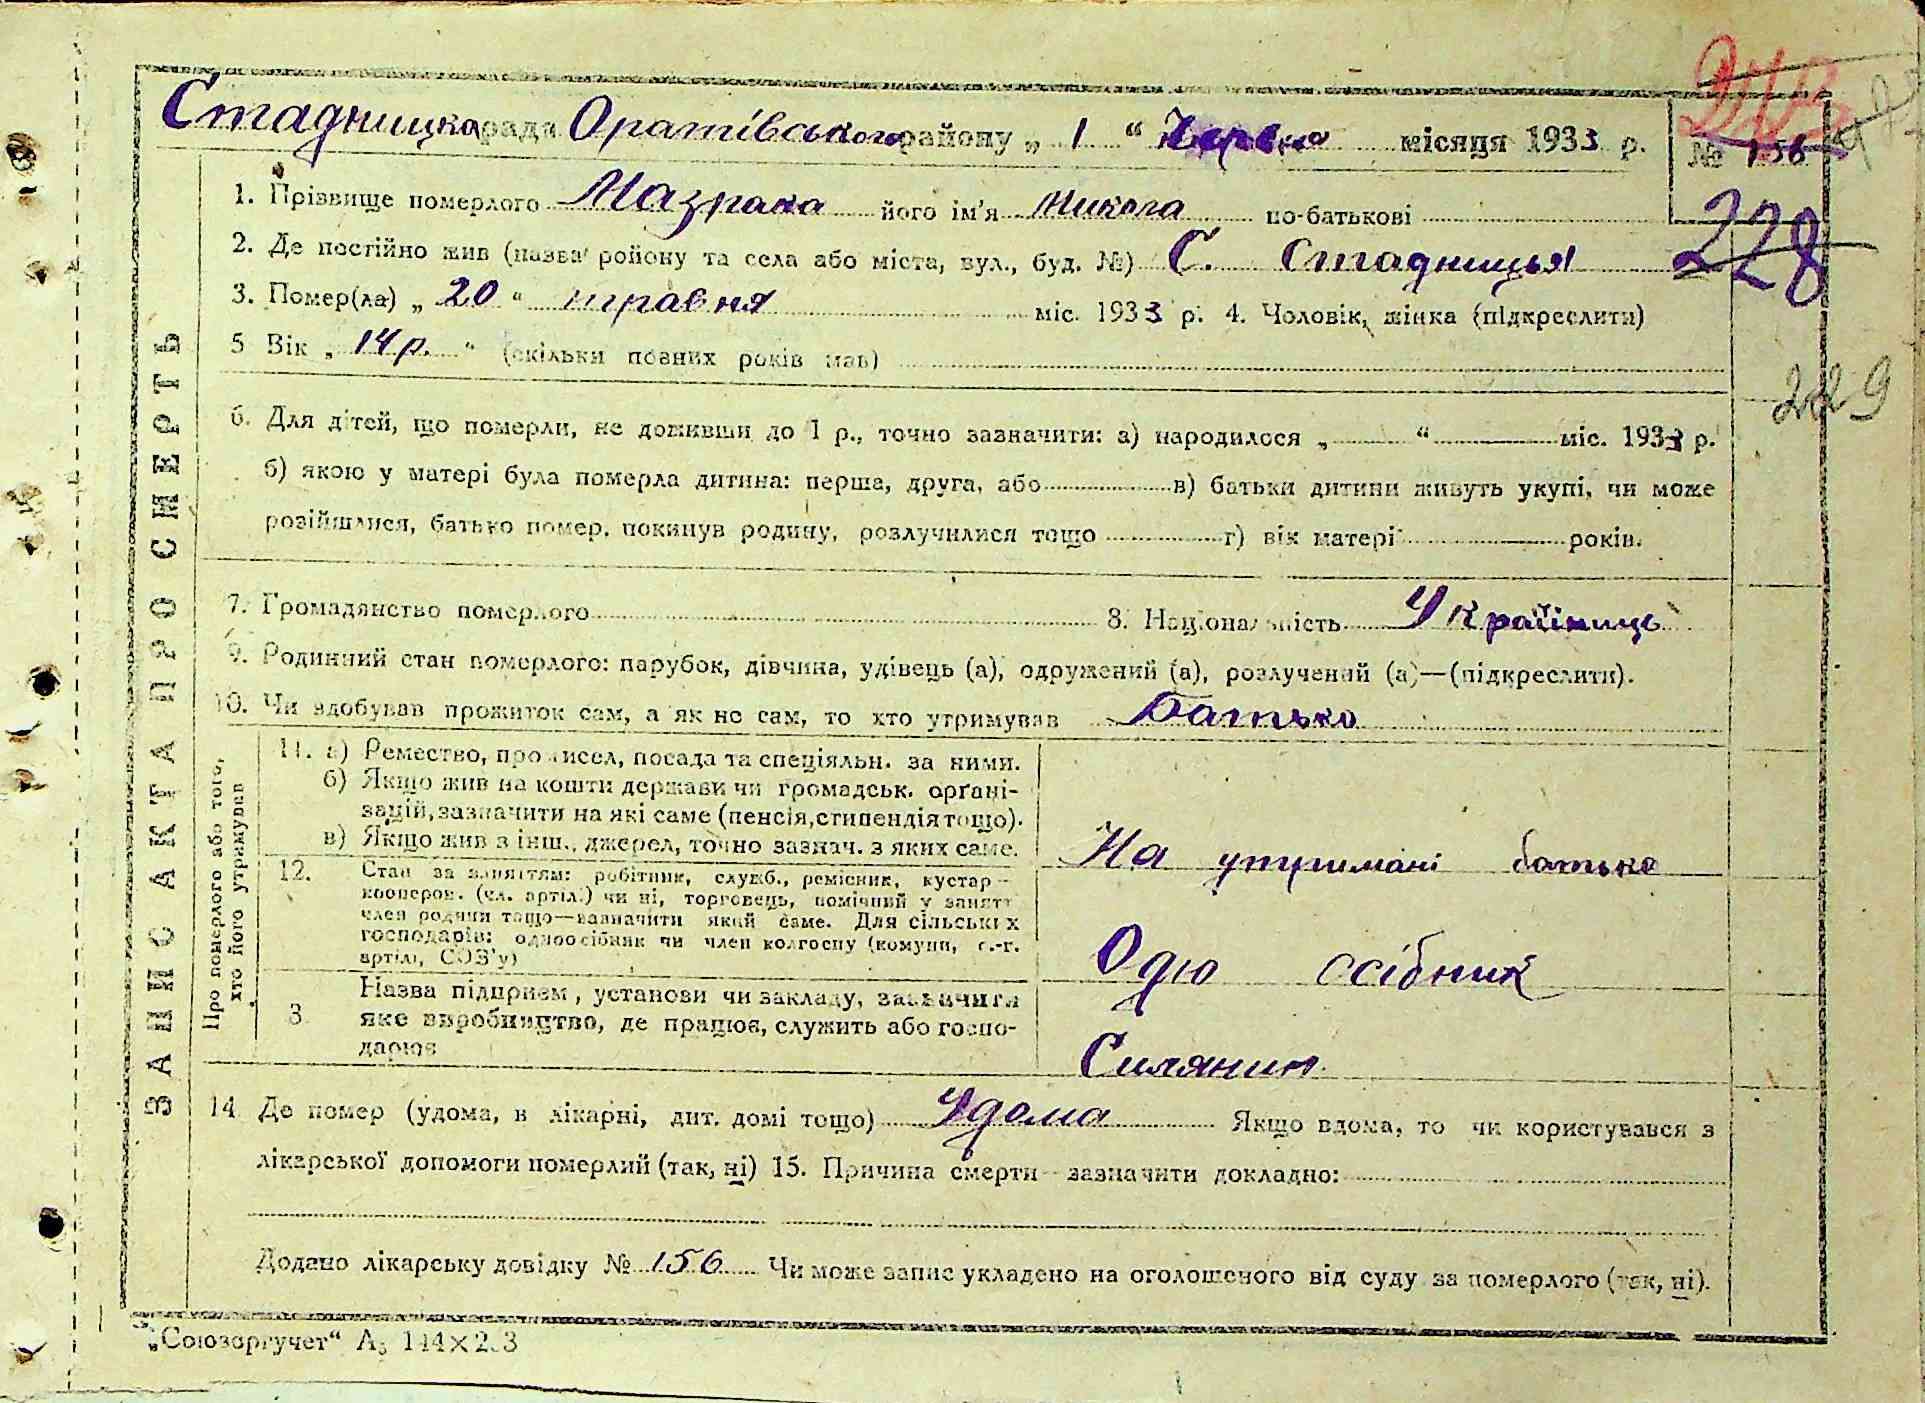 Стадницка рада Оратівського району „ 1 “ Червня місяця 1933 р.
№ 156
228
229
ЗАПИС АКТА ПРО СМЕРТЬ
1. Прізвище померлого Мазрака його ім'я Микола по-батькові
2. Де постійно жив (назва ройону та села або міста, вул., буд. №) С. Стадниця
3. Помер(ла) „ 20 “ травня міс. 1933 р. 4. Чоловік, жінка (підкреслити)
5 Вік „ 14 р. “ (скільки повних років мав)
6. Для дітей, що померли, не доживши до 1 р., точно зазначити: а) народилося „ “ міс. 1933 р.
б) якою у матері була померла дитина: перша, друга, або в) батьки дитини живуть укупі, чи може
розійшлися, батько помер, покинув родину, розлучилися тощо г) вік матері років.
7. Громадянство померлого 8. Національність Україниць
9. Родинний стан померлого: парубок, дівчина, удівець (а), одружений (а), розлучений (а)—(підкреслити).
10. Чи здобував прожиток сам, а як не сам, то хто утримував Батько
Про померлого або того,
хто його утримував
11. а) Ремество, промисел, посада та спеціяльн. за ними.
б) Якщо жив на кошти держави чи громадськ. орґані-
зацій, зазначити на які саме (пенсія, стипендія тощо).
в) Якщо жив з інш., джерел, точно зазнач. з яких саме.
На утримані батька
12. Стан за заняттям: робітник, служб., ремісник, кустар—
кооперов. (чл. артіл.) чи ні, торговець, помічний у занятт
член родини тощо—зазначити який саме. Для сільських
господарів: одноосібник чи член колгоспу (комуни, с.-г.
артілі, СОЗ'у)
Одю осібник
3. Назва підприєм, установи чи закладу, зазначити
яке виробництво, де працює, служить або госпо-
дарює
Силянин
14 Де помер (удома, в лікарні, дит. домі тощо) Удома Якщо вдома, то чи користувався з
лікарської допомоги померлий (так, ні) 15. Причина смерти—зазначити докладно:
Додано лікарську довідку № 156 Чи може запис укладено на оголошеного від суду за померлого (так, ні).
„Союзоргучет“ А5 144×203